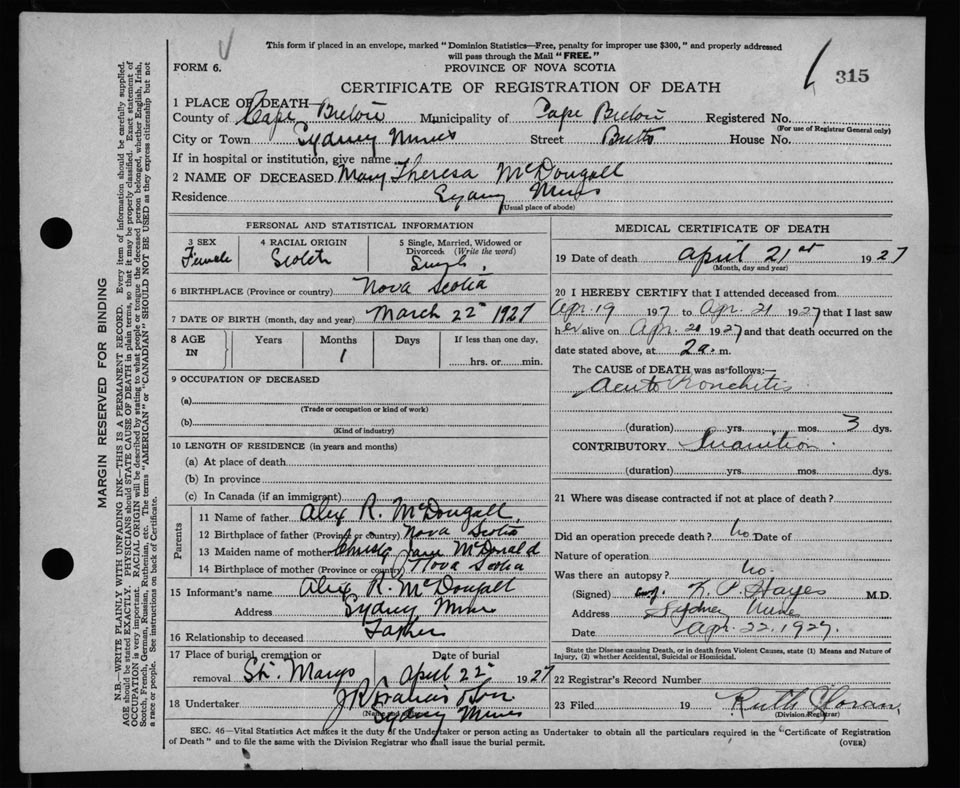 This form if placed in an envelope, marked "Dominion Statistics—Free, penalty for improper use $300," and properly addressed
will pass through the Mail "FREE."
FORM 6.
PROVINCE OF NOVA SCOTIA
315
CERTIFICATE OF REGISTRATION OF DEATH
1 PLACE OF DEATH
County of Cape Breton Municipality of Cape Breton Registered No.
(For use of Registrar General only)
City or Town Sydney Mines Street House No.
If in hospital or institution, give name
2 NAME OF DECEASED Mary Theresa McDougall
Residence Sydney Mines
(Usual place of abode)
PERSONAL AND STATISTICAL INFORMATION
3 SEX 4 RACIAL ORIGIN 5 Single, Married, Widowed or Divorced. (Write the word)
Female Scotch Single
6 BIRTHPLACE (Province or country) Nova Scotia
7 DATE OF BIRTH (month, day and year) March 22nd 1927
8 AGE IN Years Months Days If less than one day,
1 hrs. or min.
9 OCCUPATION OF DECEASED
(a)
(Trade or occupation or kind of work)
(b)
(Kind of industry)
10 LENGTH OF RESIDENCE (in years and months)
(a) At place of death
(b) In province
(c) In Canada (if an immigrant)
Parents
11 Name of father Alex R. McDougall
12 Birthplace of father (Province or country) Nova Scotia
13 Maiden name of mother Christy Jane McDonald
14 Birthplace of mother (Province or country) Nova Scotia
15 Informant's name Alex R. McDougall
Address Sydney Mines
16 Relationship to deceased Father
17 Place of burial, cremation or Date of burial
removal St. Marys April 22nd 1927
18 Undertaker J R Francis & Son
Sydney Mines
MEDICAL CERTIFICATE OF DEATH
19 Date of death April 21st 1927
(Month, day and year)
20 I HEREBY CERTIFY that I attended deceased from
Apr. 19 1927 to Apr. 21 1927 that I last saw
her alive on Apr. 20 1927 and that death occurred on
date stated above, at 2 a. m.
The CAUSE of DEATH was as follows:—
Acute Bronchitis
(duration) yrs. mos. 3 dys.
CONTRIBUTORY Inanition
(duration) yrs. mos. dys.
21 Where was disease contracted if not at place of death?
Did an operation precede death? no Date of
Nature of operation
Was there an autopsy? no.
(Signed) K. P. Hayes M.D.
Address Sydney Mines
Date Apr. 22. 1927.
State the Disease causing Death, or in death from Violent Causes, state (1) Means and Nature of
Injury, (2) whether Accidental, Suicidal or Homicidal.
22 Registrar's Record Number
23 Filed 19 Ruth
(Division Registrar)
SEC. 46—Vital Statistics Act makes it the duty of the Undertaker or person acting as Undertaker to obtain all the particulars required in the "Certificate of Registration
of Death" and to file the same with the Division Registrar who shall issue the burial permit. (OVER)
MARGIN RESERVED FOR BINDING
N.B.—WRITE PLAINLY WITH UNFADING INK—THIS IS A PERMANENT RECORD. Every item of information should be carefully supplied.
AGE should be stated EXACTLY. PHYSICIANS should STATE CAUSE OF DEATH in plain terms, so that it may be properly classified. Exact statement of
OCCUPATION is very important. RACIAL ORIGIN will be described by stating to what people or tongue the deceased person belonged, whether English, Irish,
Scotch, French, German, Russian, Ruthenian, etc. The terms "AMERICAN" or "CANADIAN" SHOULD NOT BE USED as they express citizenship but not
a race or people. See instructions on back of Certificate.